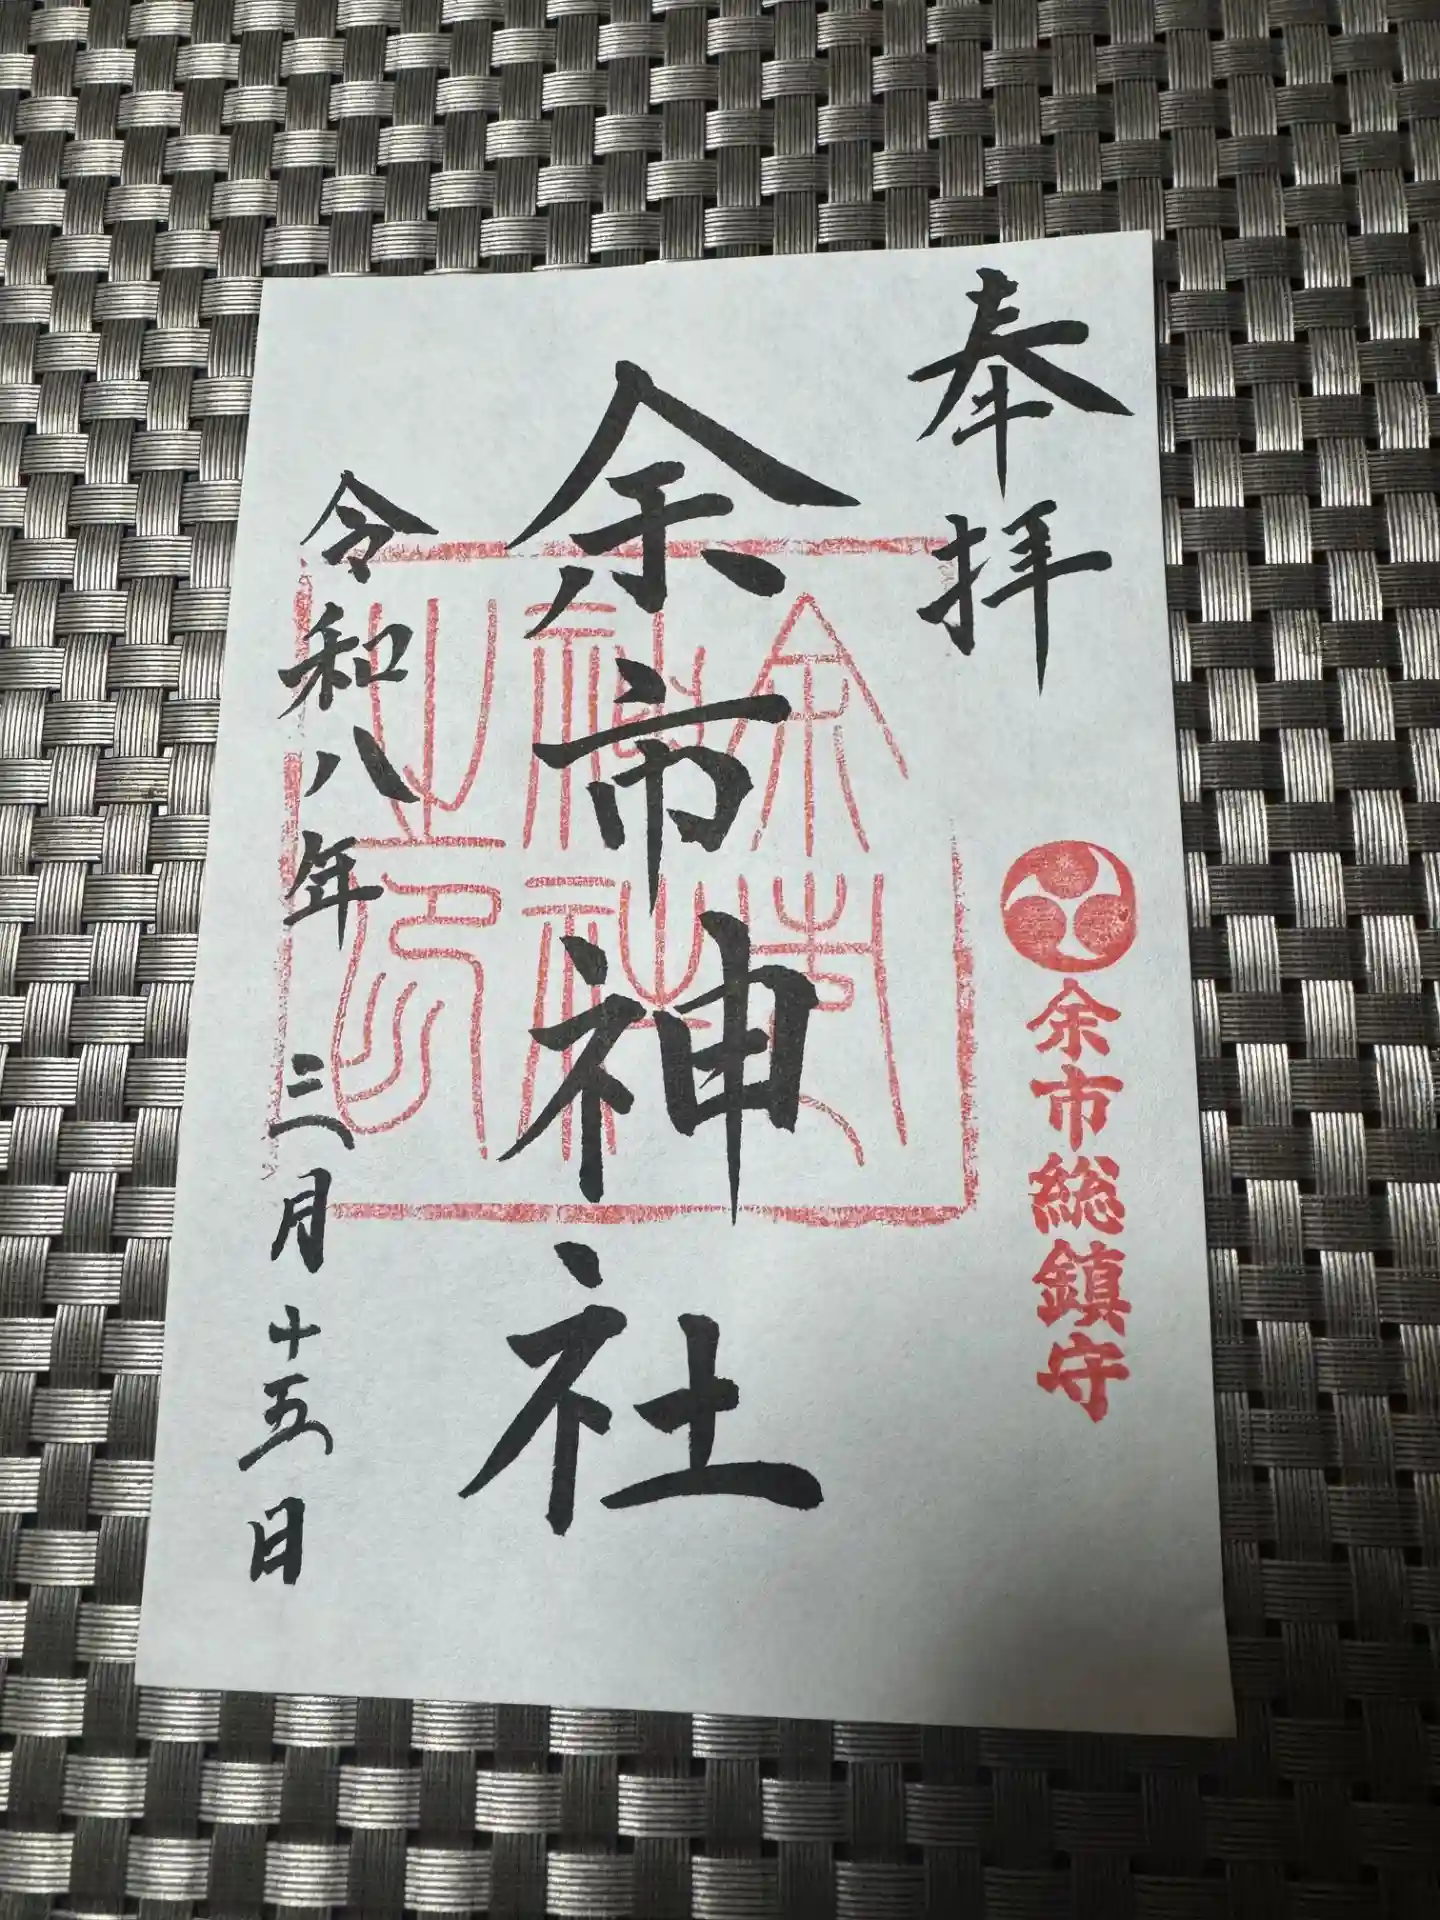 奉拝
余市総鎮守
余市神社
余市神社之印
令和八年三月十五日